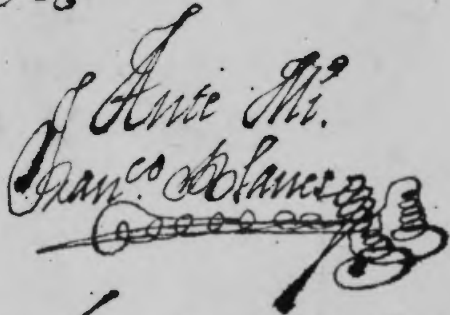 Ante Mi.
Fran.co Blanes